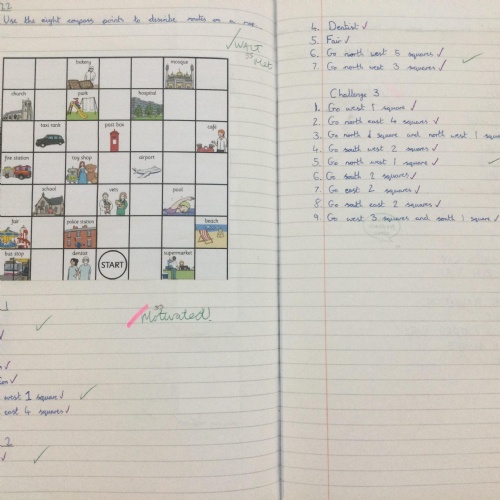 22
Use the eight compass points to describe routes on a map.
WALT
bakery
mosque
church
park
hospital
taxi rank
post box
café
fire station
toy shop
airport
school
vets
pool
fair
police station
beach
bus stop
dentist
START
supermarket
Motivated!
west 1 square
east 4 squares
2
4. Dentist
5. Fair
6. Go north west 5 squares
7. Go north west 3 squares
Challenge 3
1. Go west 1 square
2. Go north east 4 squares
3. Go north 1 square and north west 1 square
4. Go south west 2 squares
5. Go north west 1 square
6. Go south 2 squares
7. Go east 2 squares
8. Go south east 2 squares
9. Go west 3 squares and south 1 square